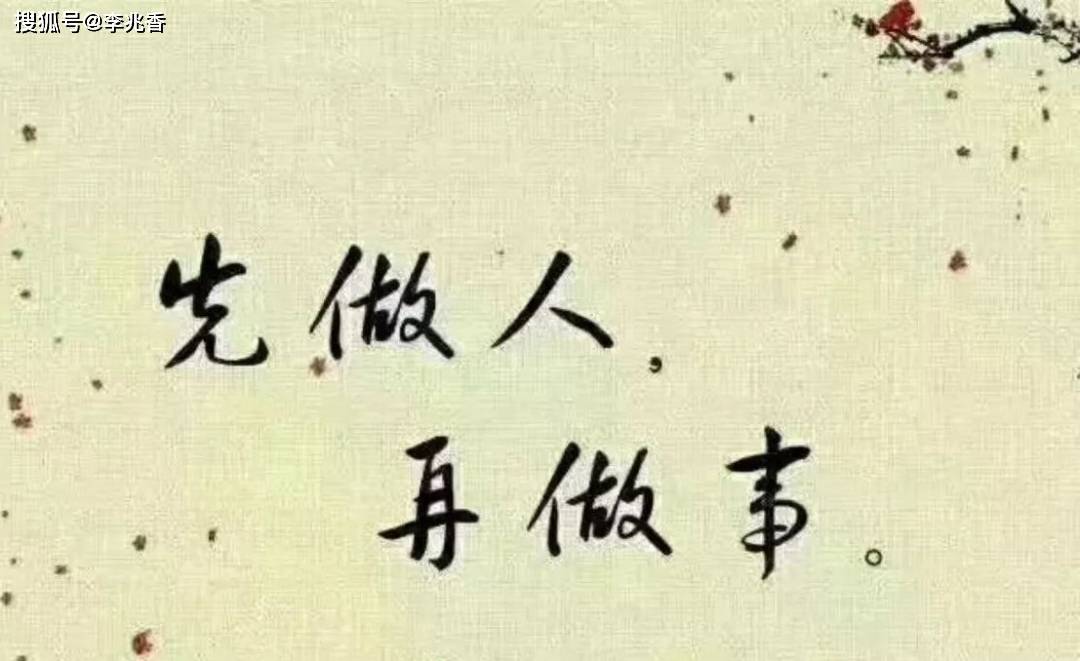 搜狐号@李兆香
先做人,
再做事。